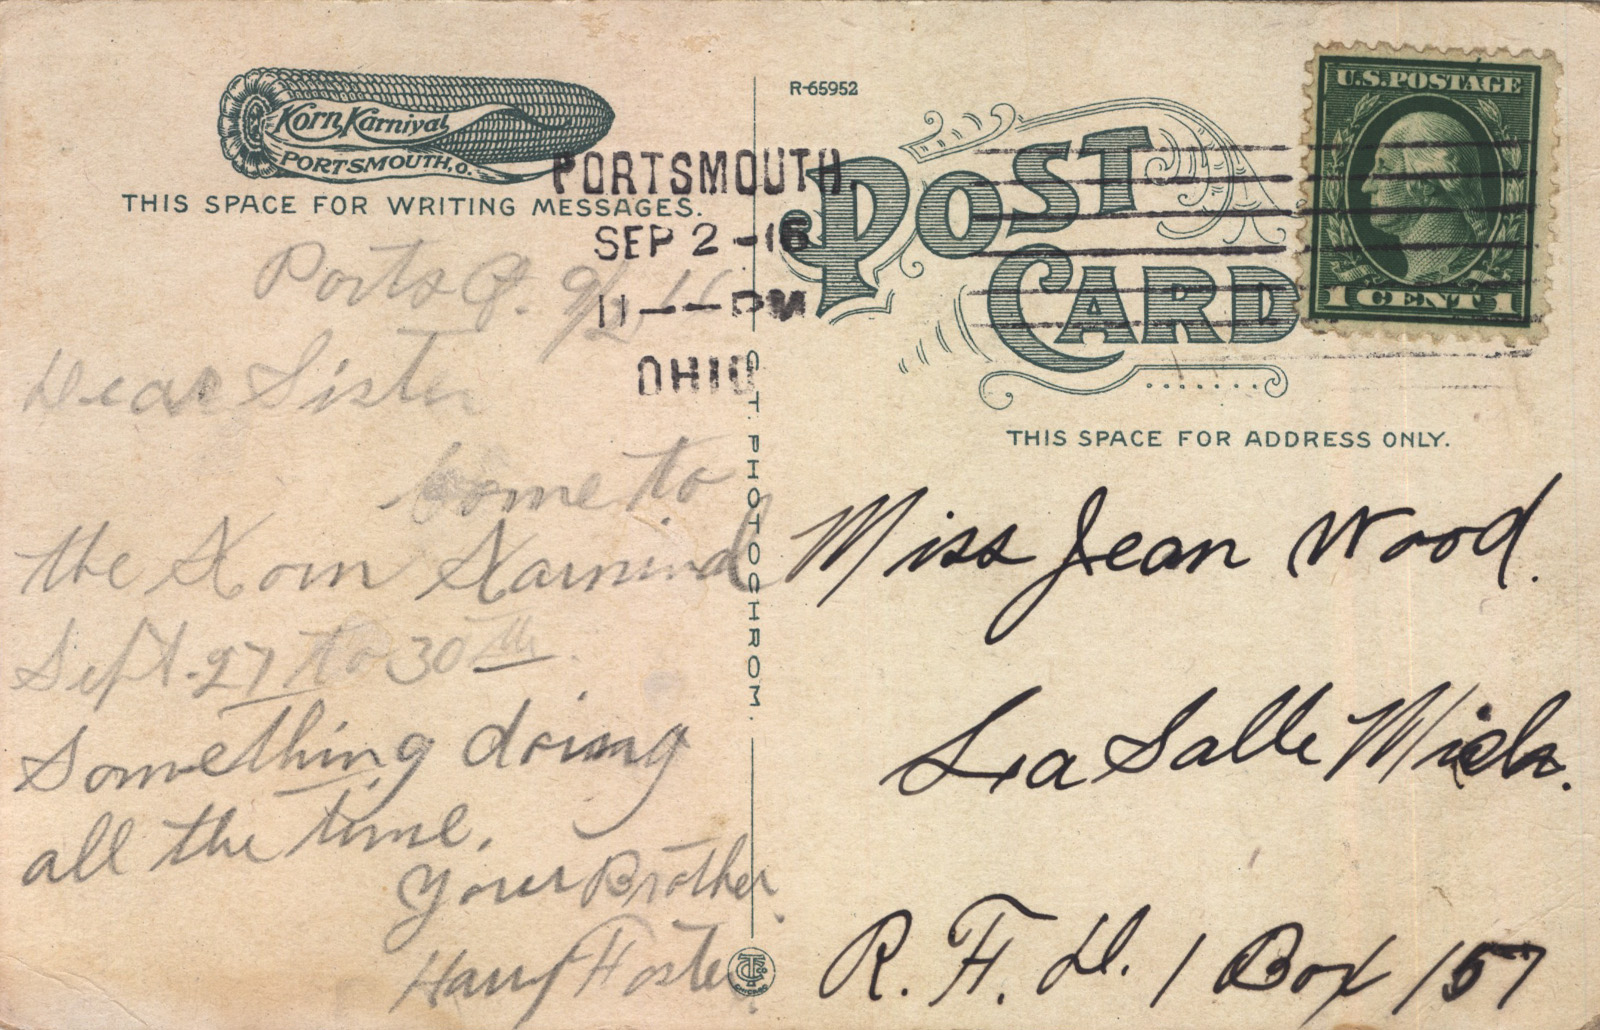 Korn Karnival
PORTSMOUTH, O.
THIS SPACE FOR WRITING MESSAGES.
Ports O. 9/2 16
Dear Sister
Come to
the Korn Karnival
Sept. 27 to 30th.
Something doing
all the time.
Your Brother
Harry Foster
C.T. PHOTOCHROM.
CHICAGO
R-65952
POST
CARD
PORTSMOUTH,
SEP 2 -16
11 -- PM
OHIO
U.S. POSTAGE
1 CENT 1
THIS SPACE FOR ADDRESS ONLY.
Miss Jean Wood.
La Salle Mich.
R. F. D. 1 Box 157